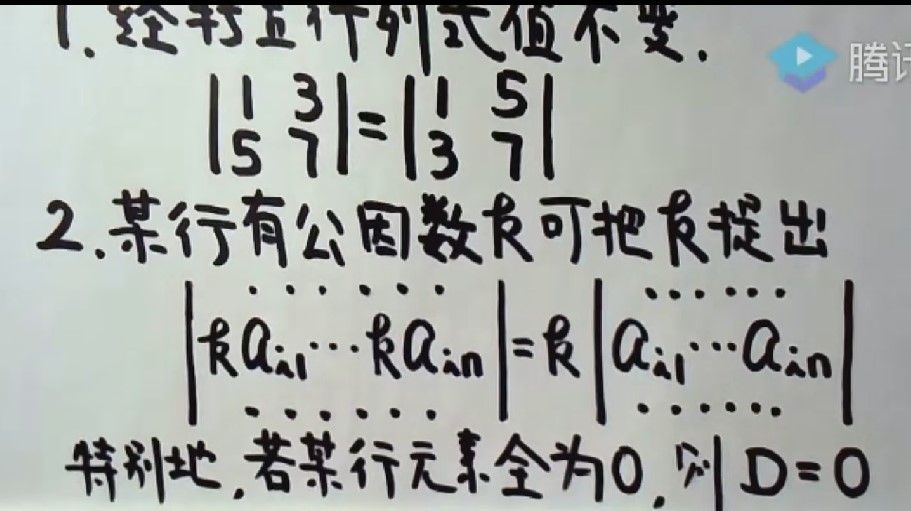 1. 经转置行列式值不变.
腾讯
|1 3| = |1 5|
|5 7| |3 7|
2. 某行有公因数k可把k提出
...... ......
|kai1...kain| = k|ai1...ain|
...... ......
特别地,若某行元素全为0,则D=0